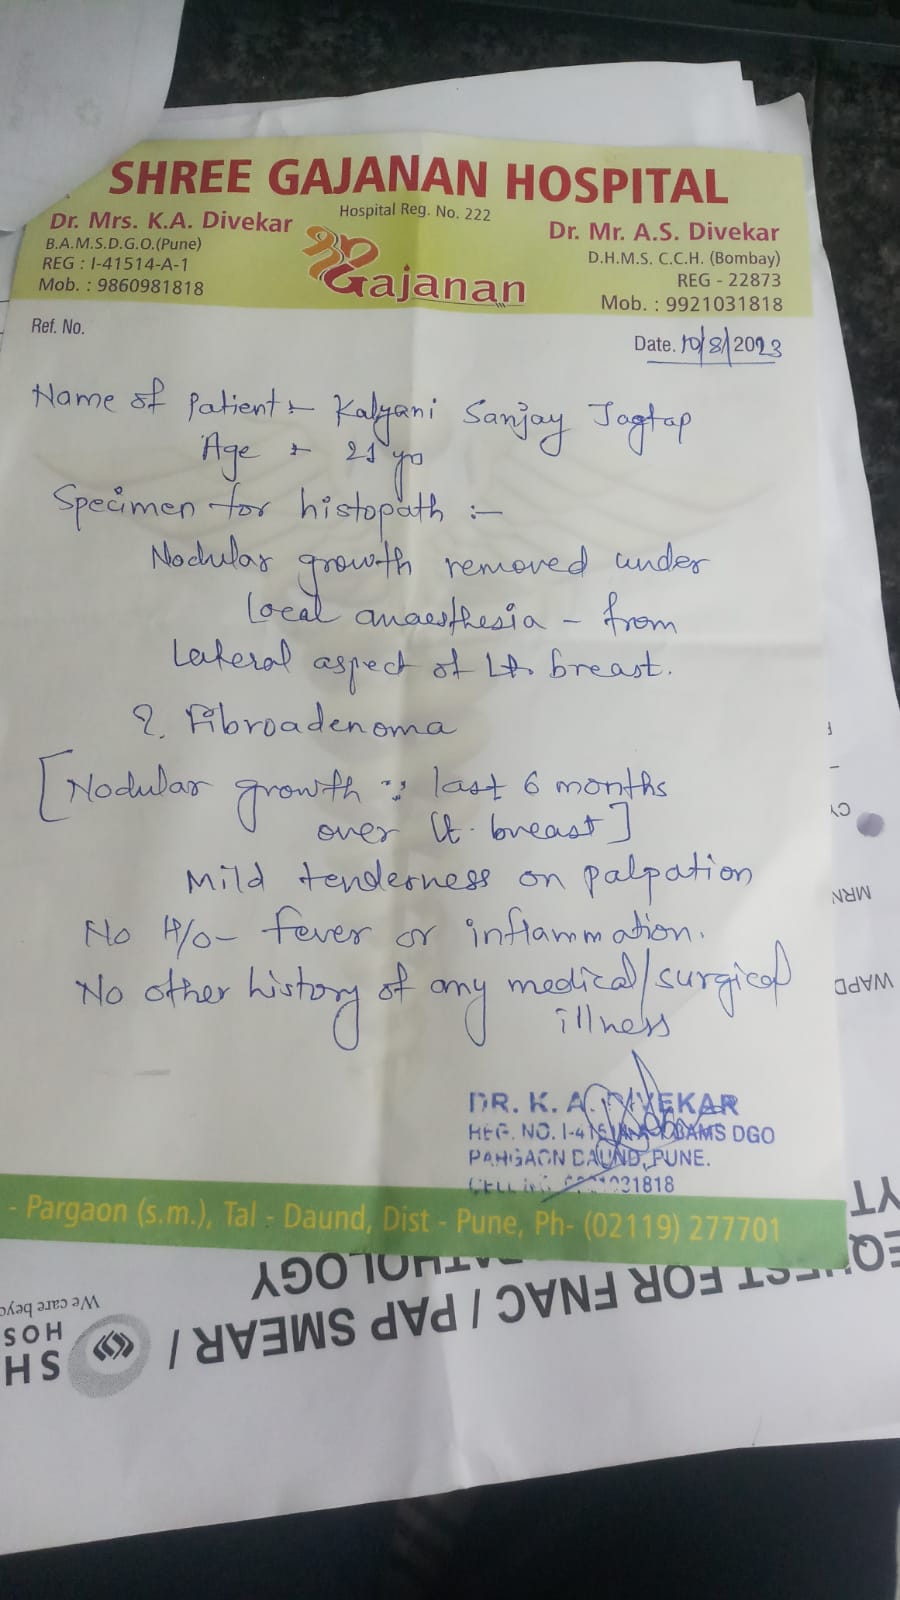 SHREE GAJANAN HOSPITAL
Hospital Reg. No. 222
Dr. Mrs. K.A. Divekar
B.A.M.S.D.G.O.(Pune)
REG : I-41514-A-1
Mob. : 9860981818
Gajanan
Dr. Mr. A.S. Divekar
D.H.M.S. C.C.H. (Bombay)
REG - 22873
Mob. : 9921031818
Ref. No.
Date. 10/8/2023
Name of Patient :- Kalyani Sanjay Jagtap
Age :- 21 yo
Specimen for histopath :-
Nodular growth removed under
local anaesthesia - from
lateral aspect of Lt. breast.
?. Fibroadenoma
[Nodular growth :: last 6 months
over Lt. breast]
Mild tenderness on palpation
No H/o- fever or inflammation.
No other history of any medical/surgical
illness
DR. K. A. DIVEKAR
REG. NO. I-415 BAMS DGO
PARGAON DAUND, PUNE.
CELL 31818
- Pargaon (s.m.), Tal - Daund, Dist - Pune, Ph- (02119) 277701
CY
MRN
WAPD
YT
EQUEST FOR FNAC / PAP SMEAR /
PATHOLOGY
SH
HOS
We care beyo